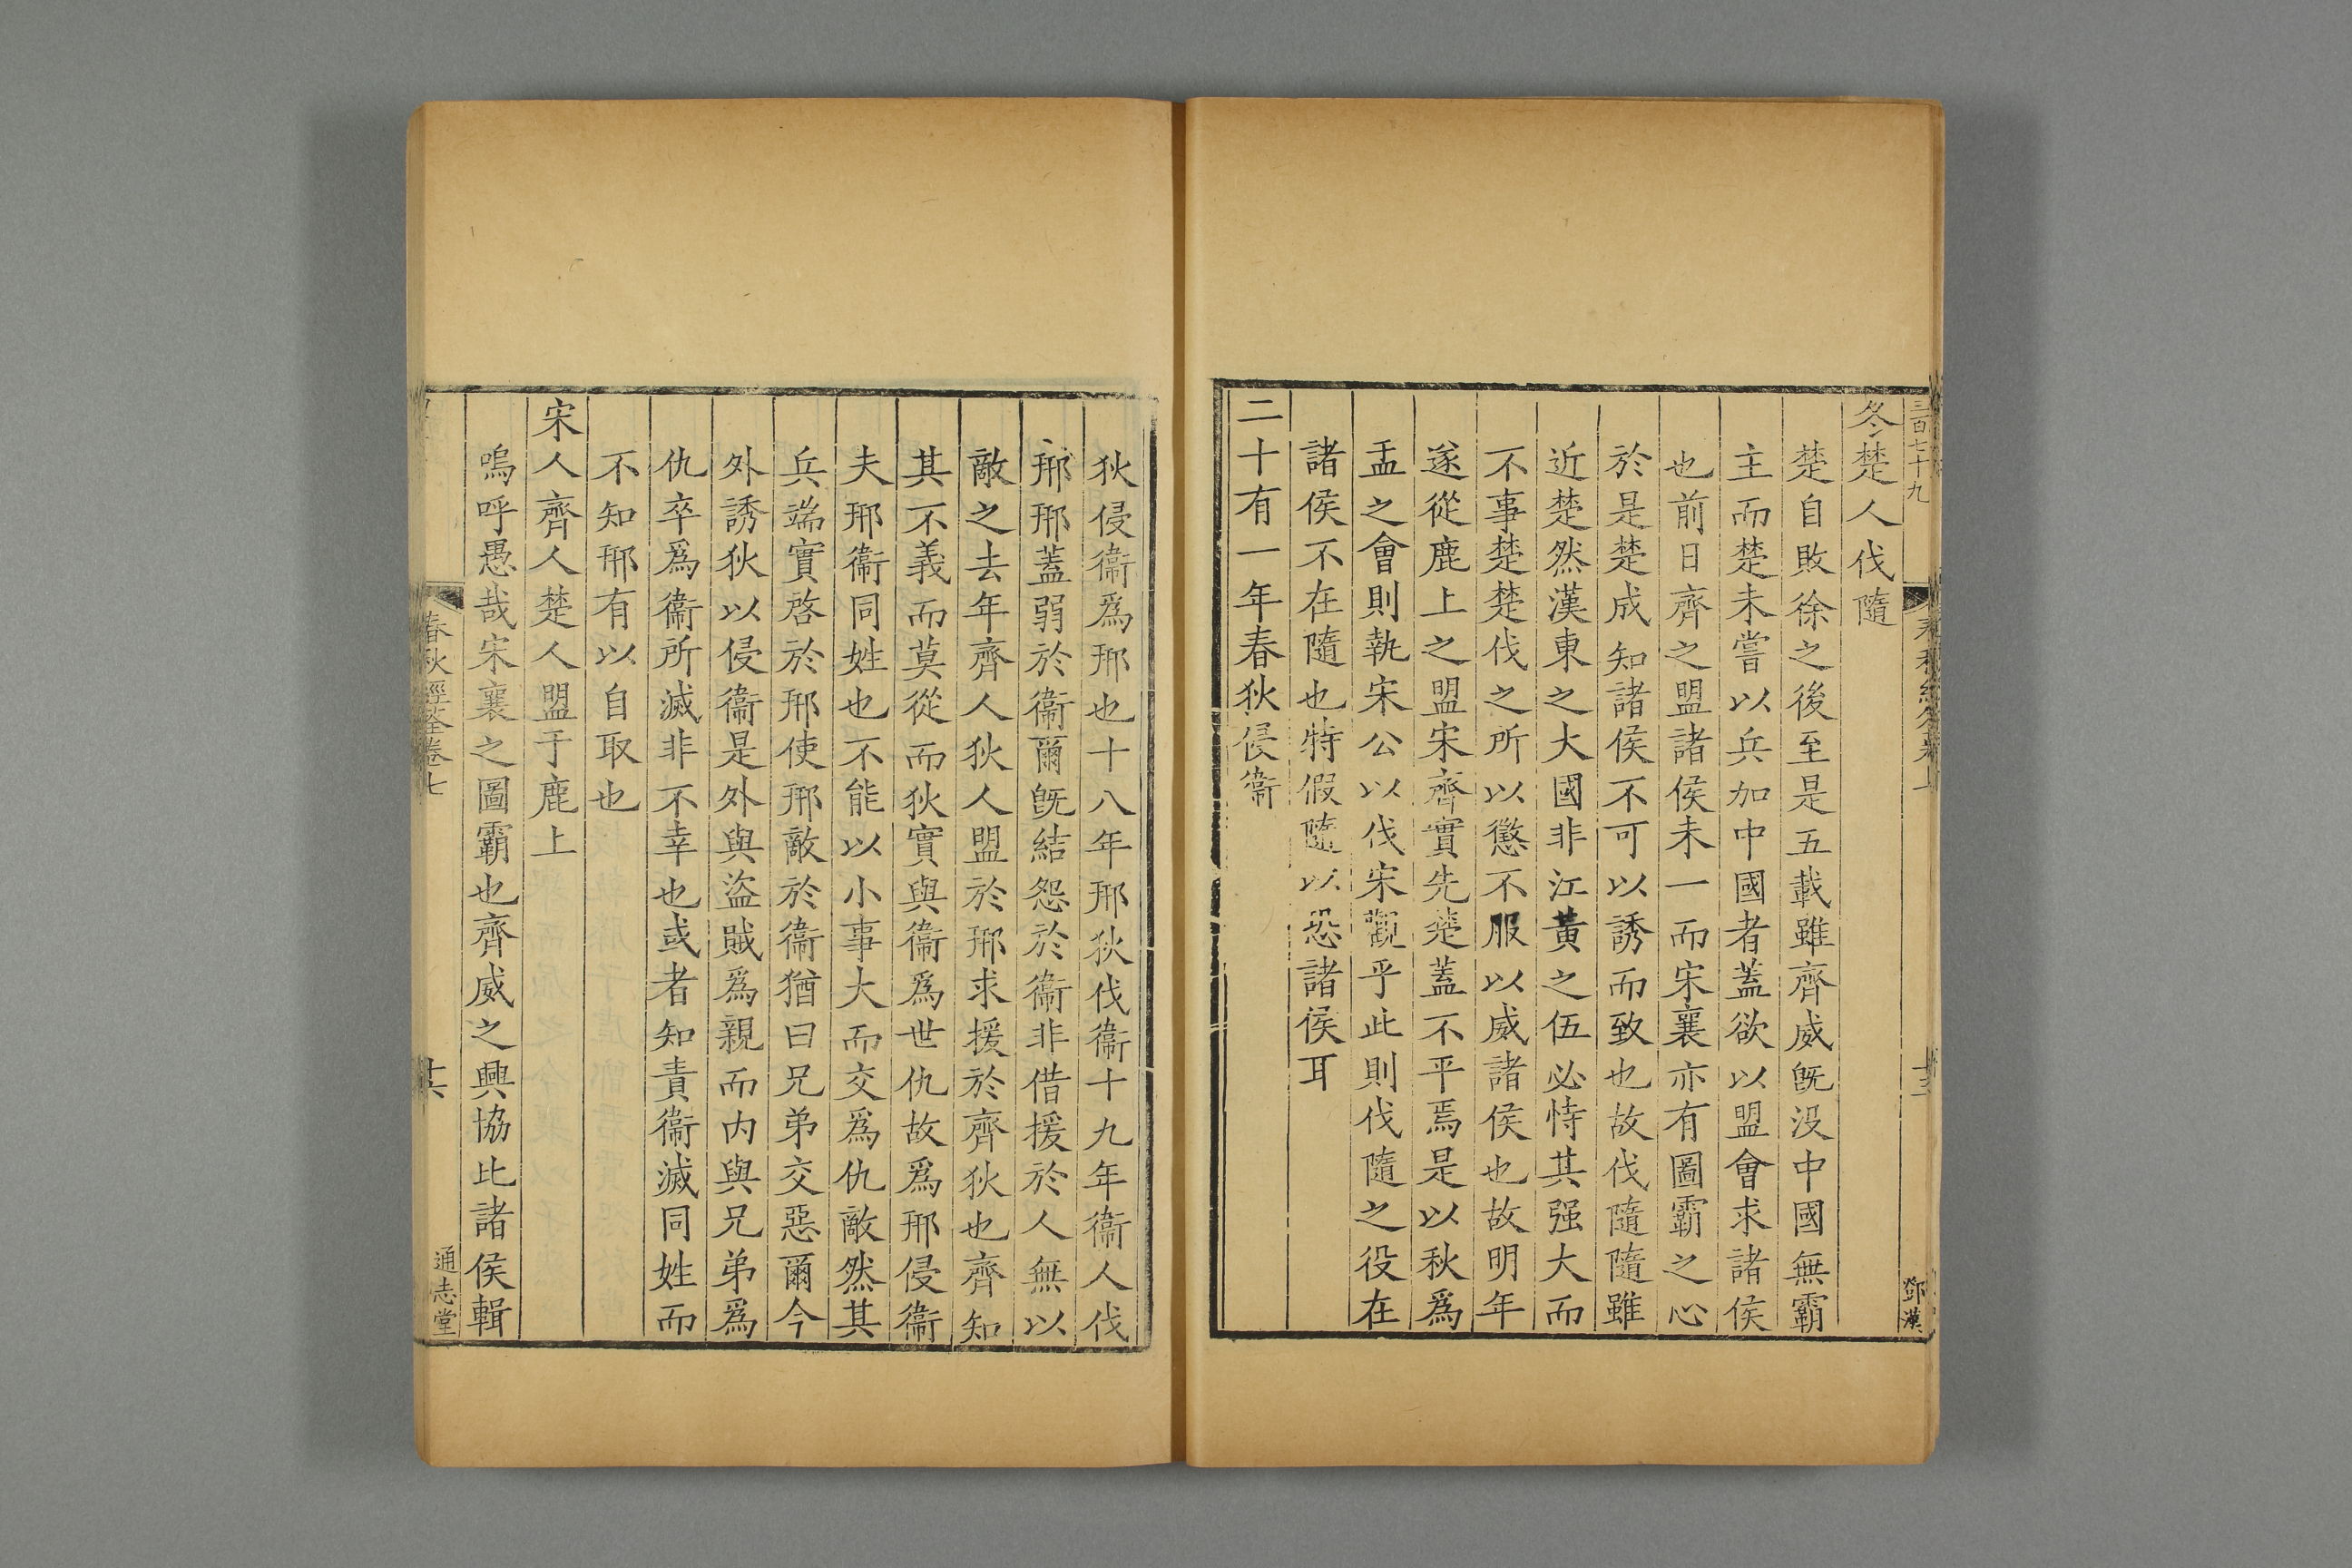 三百七十九
冬楚人伐隨
楚自敗徐之後至是五載雖齊威旣没中國無霸
主而楚未嘗以兵加中國者蓋欲以盟會求諸侯
也前日齊之盟諸侯未一而宋襄亦有圖霸之心
於是楚成知諸侯不可以誘而致也故伐隨隨雖
近楚然漢東之大國非江黃之伍必恃其强大而
不事楚楚伐之所以懲不服以威諸侯也故明年
遂從鹿上之盟宋齊實先楚蓋不平焉是以秋爲
盂之會則執宋公以伐宋觀乎此則伐隨之役在
諸侯不在隨也特假隨以恐諸侯耳
二十有一年春狄侵衞
鄧漢
狄侵衞爲邢也十八年邢狄伐衞十九年衞人伐
邢邢蓋弱於衞爾旣結怨於衞非借援於人無以
敵之去年齊人狄人盟於邢求援於齊狄也齊知
其不義而莫從而狄實與衞爲世仇故爲邢侵衞
夫邢衞同姓也不能以小事大而交爲仇敵然其
兵端實啓於邢使邢敵於衞猶曰兄弟交惡爾今
外誘狄以侵衞是外與盜賊爲親而内與兄弟爲
仇卒爲衞所滅非不幸也或者知責衞滅同姓而
不知邢有以自取也
宋人齊人楚人盟于鹿上
嗚呼愚哉宋襄之圖霸也齊威之興協比諸侯輯
春秋經筌卷七
十六
通志堂